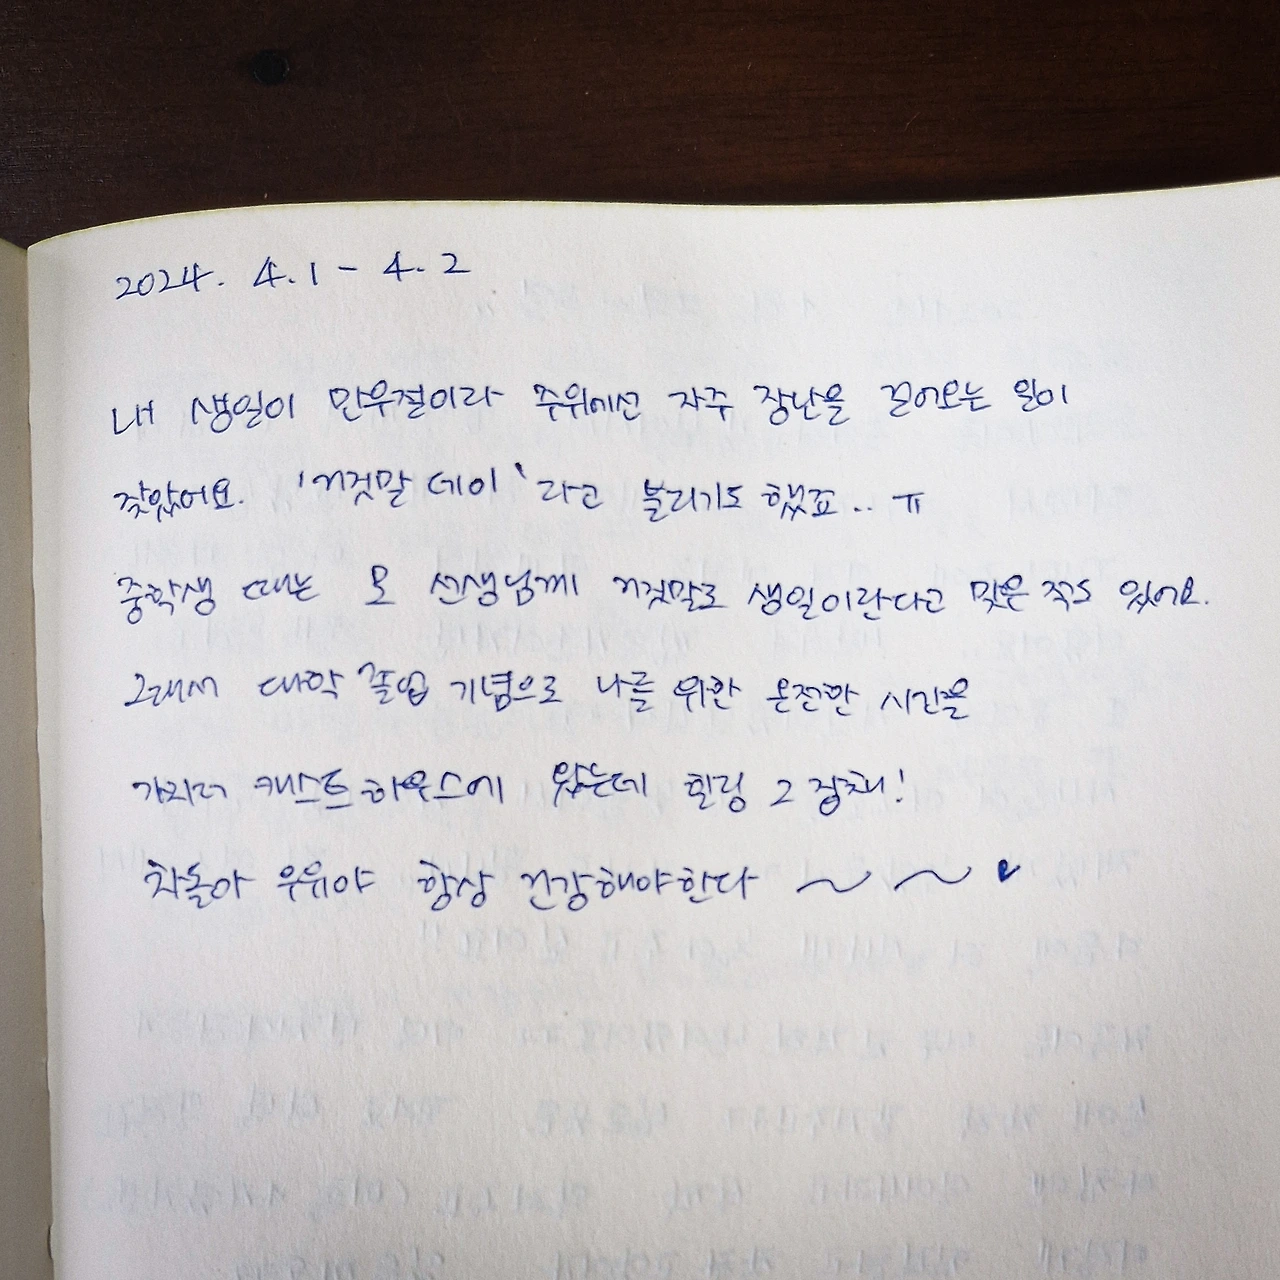 2024. 4.1 - 4.2
내 생일이 만우절이라 주위에선 자주 장난을 걸어오는 일이
잦았어요. '거짓말 데이'라고 불리기도 했죠.. ㅠ
중학생 때는 모 선생님께 거짓말로 생일이란다고 맞은 적도 있어요.
그래서 대학 졸업 기념으로 나를 위한 온전한 시간을
가지러 게스트하우스에 왔는데 힐링 그 잡채!
차돌아 우유야 항상 건강해야한다 ~ ~ ♥